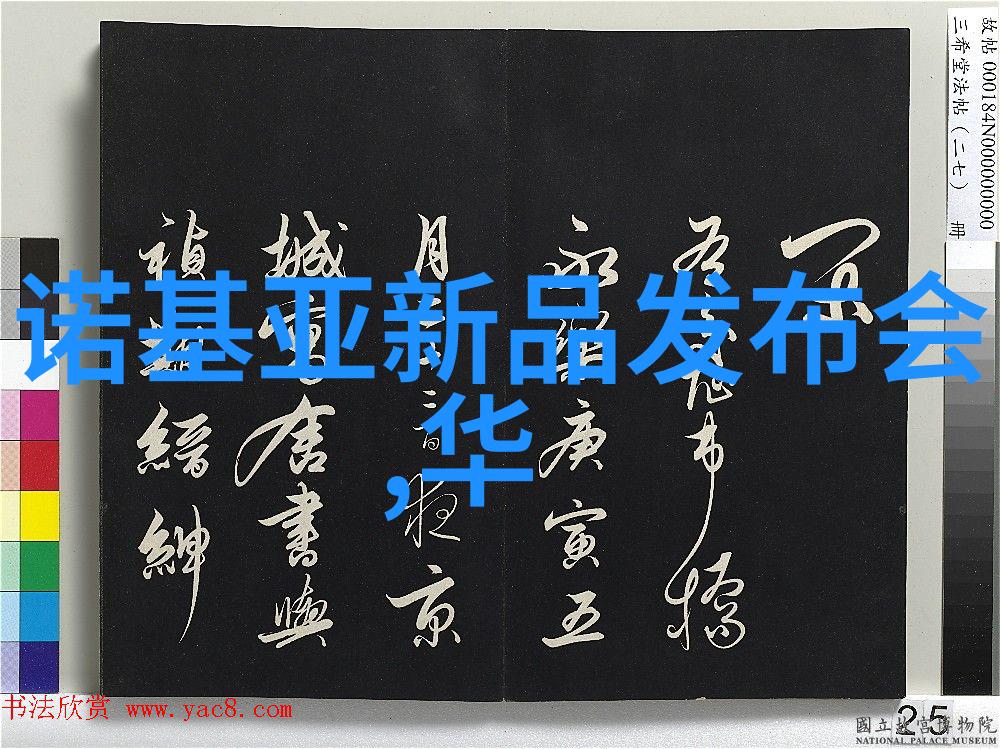 诺基亚新品发布会
,华
永樂庚寅五
月十二日夜京
城寓舍書與
禎期縉紳
故帖000184N000000000
三希堂法帖(二七) 冊
书法欣赏 www.yac8.com
25
國立故宮博物院
NATIONAL PALACE MUSEUM